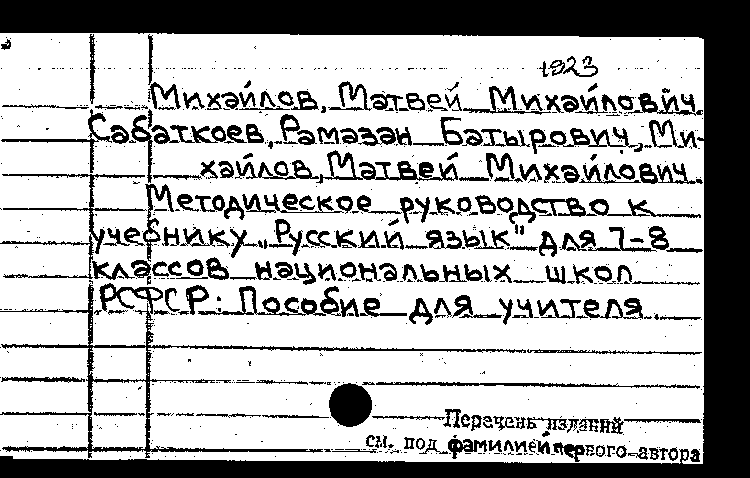 1923
Михайлов, Матвей Михайлович.
Сабаткоев, Рамазан Батырович, Ми-
хайлов, Матвей Михайлович.
Методическое руководство к
учебнику „Русский язык" для 7-8
классов национальных школ
РСФСР: Пособие для учителя.
Перечень изданий
см. под фамилией первого автора